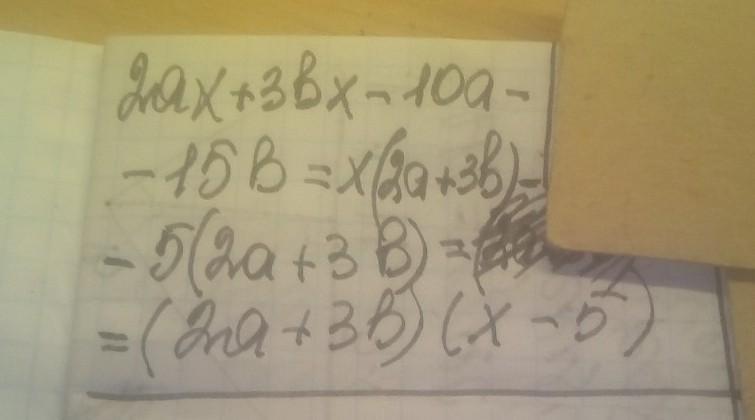 2ax+3bx-10a-
-15b=x(2a+3b)-
-5(2a+3b)=
=(2a+3b)(x-5)